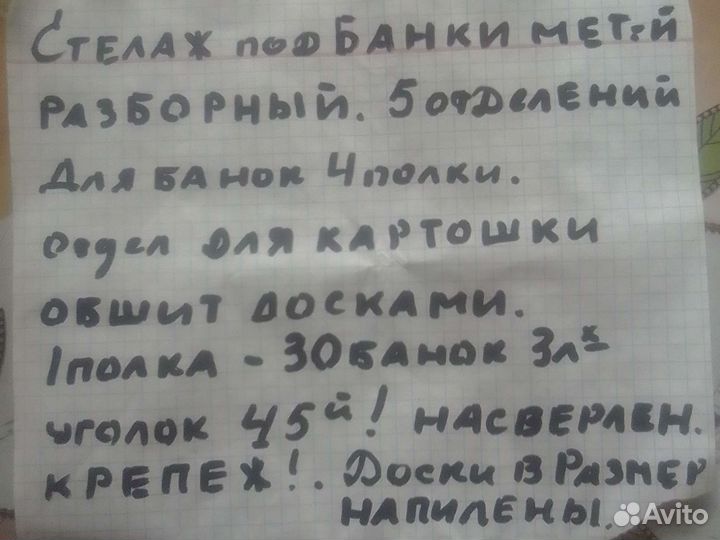 Стелаж под банки мет-й
разборный. 5 отделений
Для банок 4 полки.
отдел для картошки
обшит досками.
1 полка - 30 банок 3лх
уголок 45й! насверлен.
крепеж!. Доски в размер
напилены.
Avito